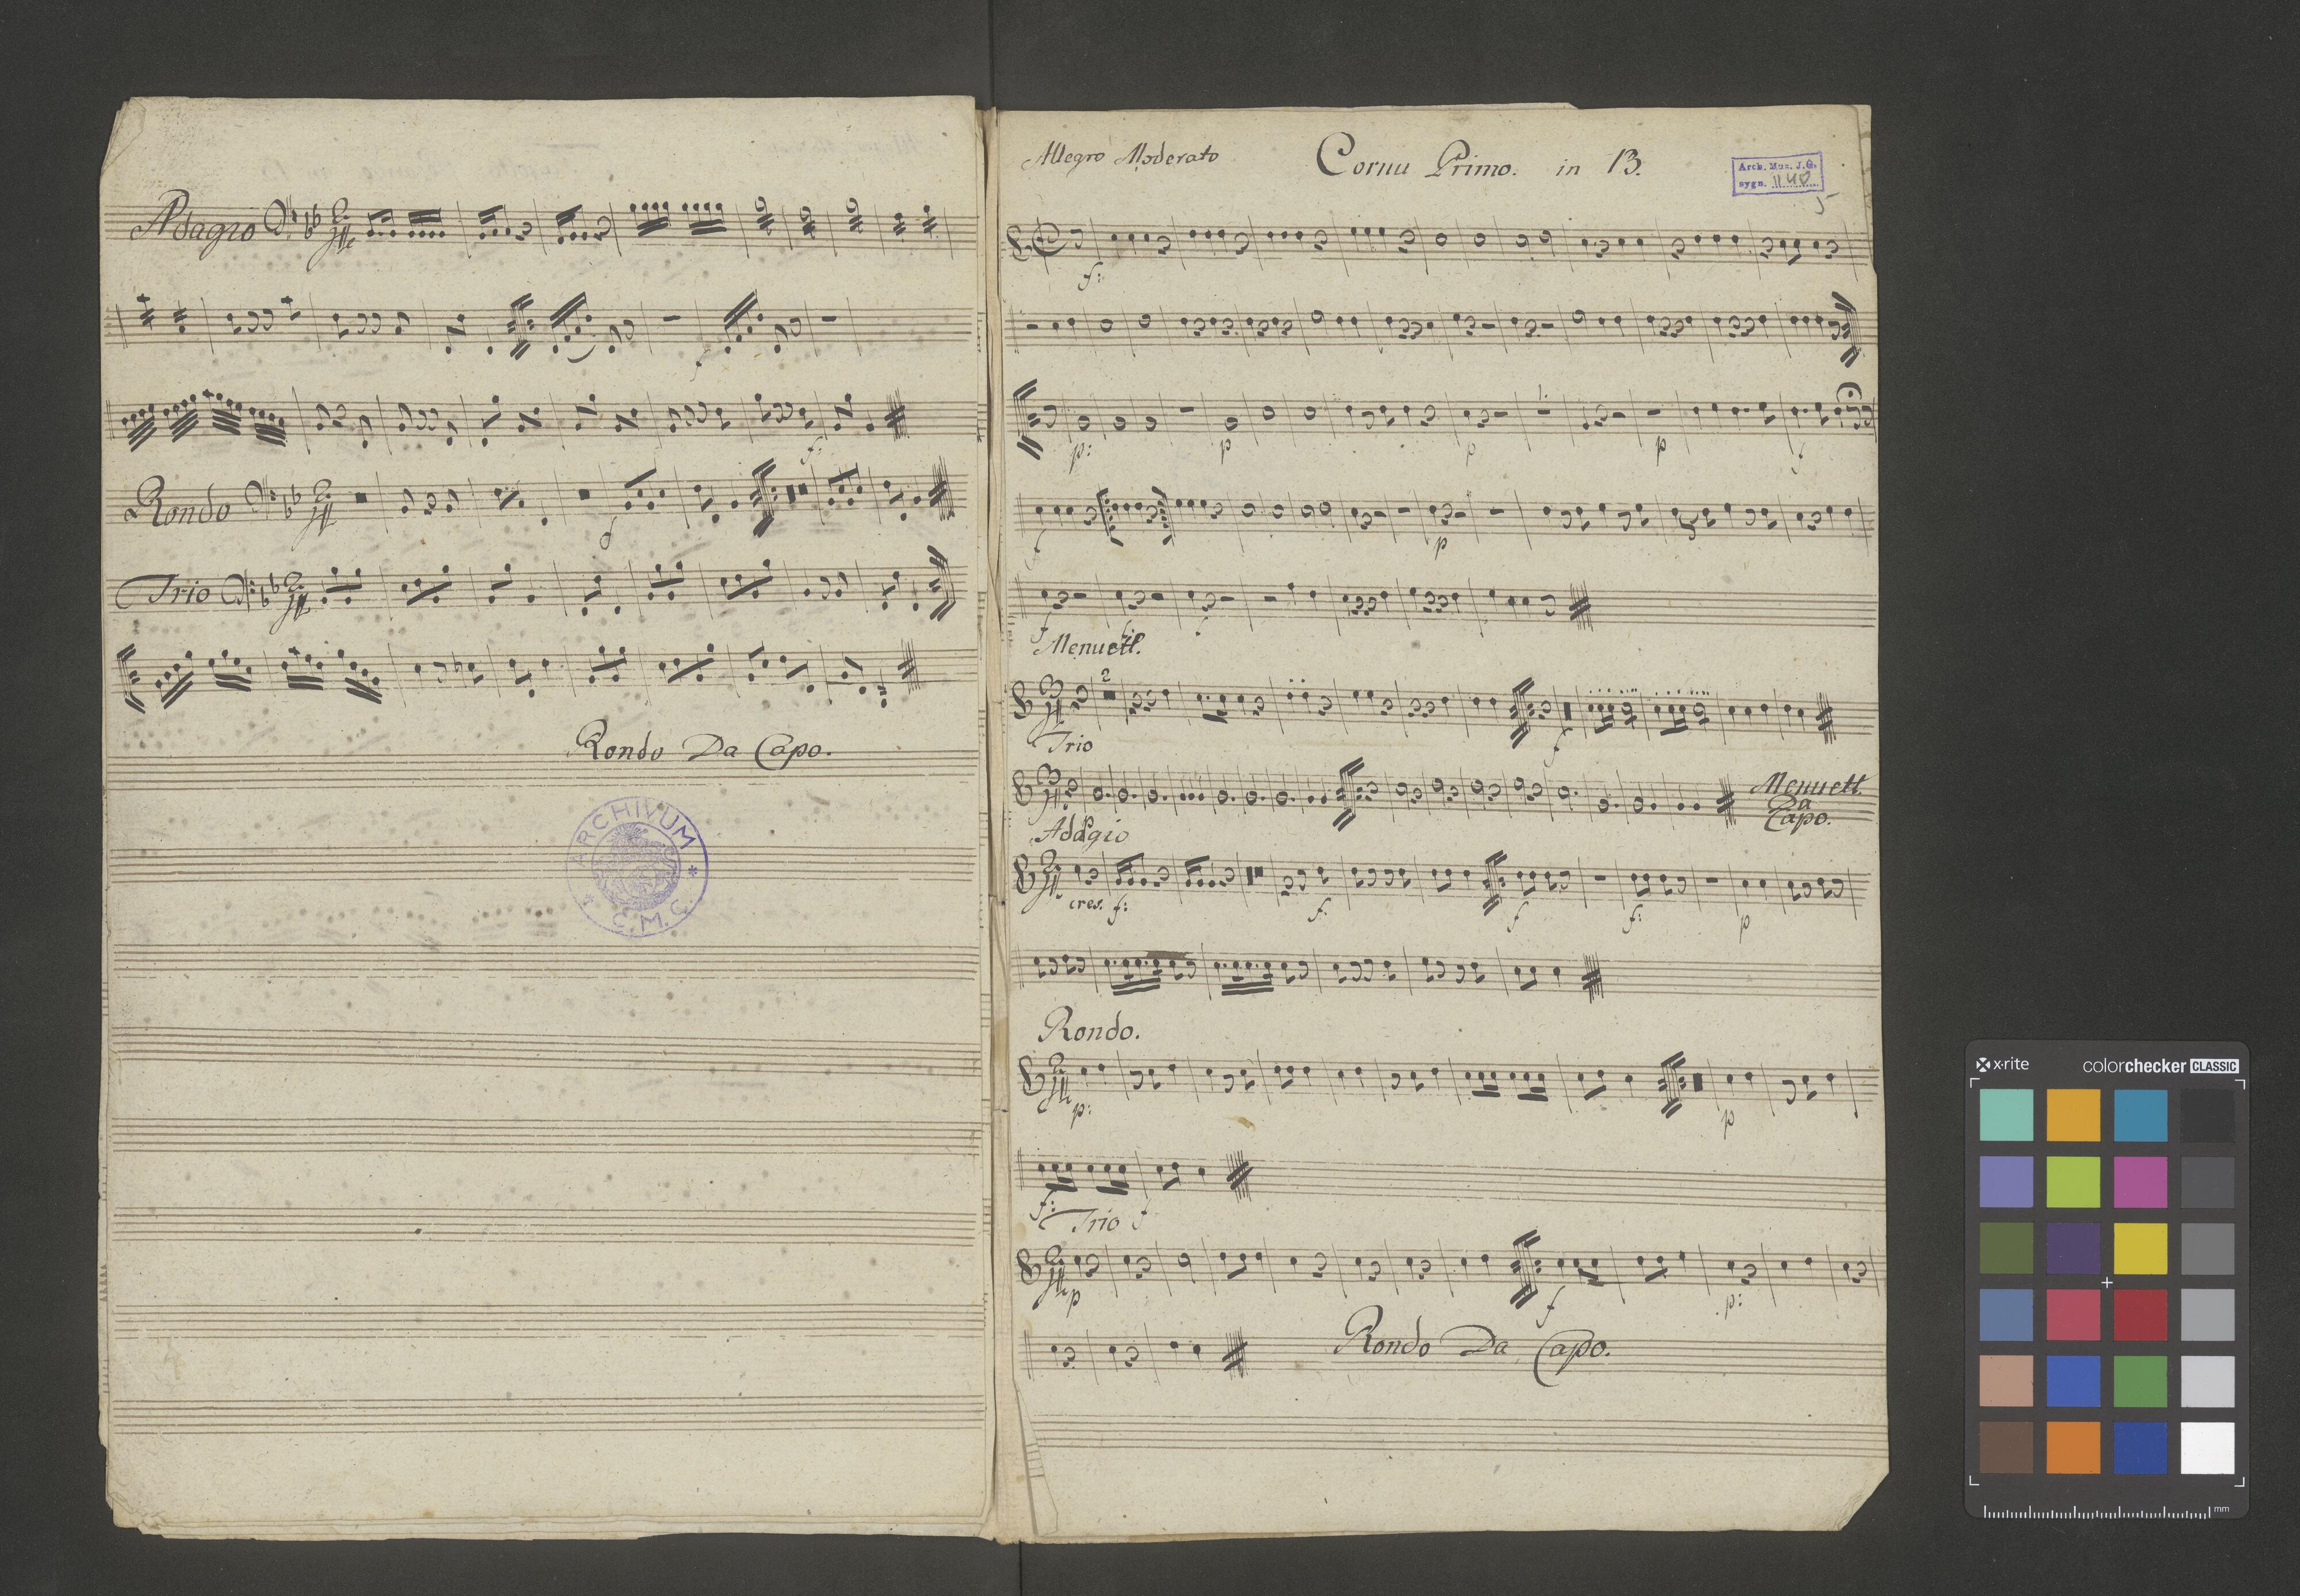 Adagio
f
f:
Rondo
Trio
Rondo Da Capo.
ARCHIVUM * C. M. C. *
Allegro Moderato Cornu Primo. in B.
Arch. Mus. J.G.
sygn. II 40
5
f:
p: p p p f
f p
f
Menuett.
2
f
Trio
Menuett
Da
Capo.
Adagio
cres. f: f. f f: p
Rondo.
p: p
f: f
Trio
p f p:
Rondo Da Capo.
x-rite colorchecker CLASSIC
mm